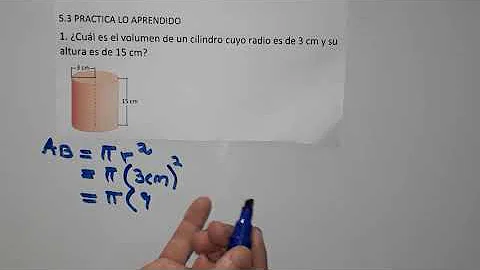 5.3 PRACTICA LO APRENDIDO
1. ¿Cuál es el volumen de un cilindro cuyo radio es de 3 cm y su
altura es de 15 cm?
3 cm
15 cm
AB = π r²
= π (3cm)²
= π (9